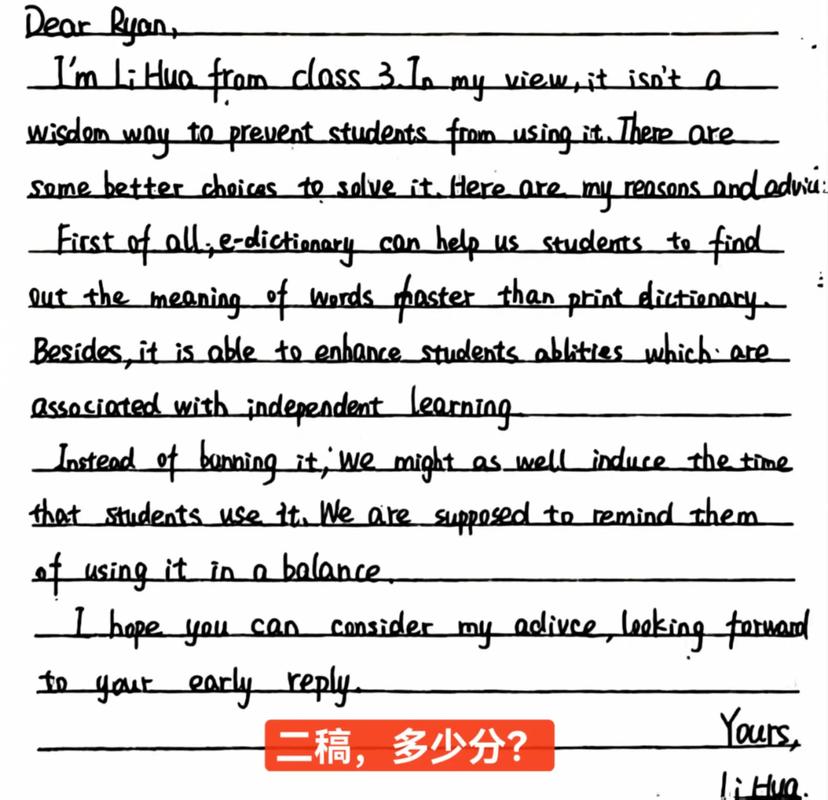 Dear Ryan,
I'm Li Hua from class 3. In my view, it isn't a
wisdom way to prevent students from using it. There are
some better choices to solve it. Here are my reasons and
First of all, e-dictionary can help us students to find
out the meaning of words phaster than print dictionary.
Besides, it is able to enhance students ablities which are
associated with independent learning
Instead of banning it, we might as well induce the time
that students use it. We are supposed to remind them
of using it in a balance.
I hope you can consider my adivce, looking forward
to your early reply.
二稿，多少分？
Yours,
Li Hua.